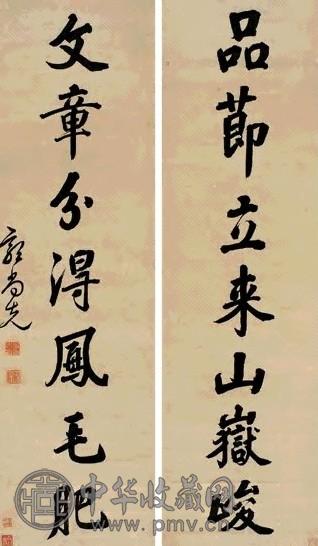 品節立来山嶽峻
文章分得鳳毛肥
郭尚先
中华收藏网
www.pmv.cn